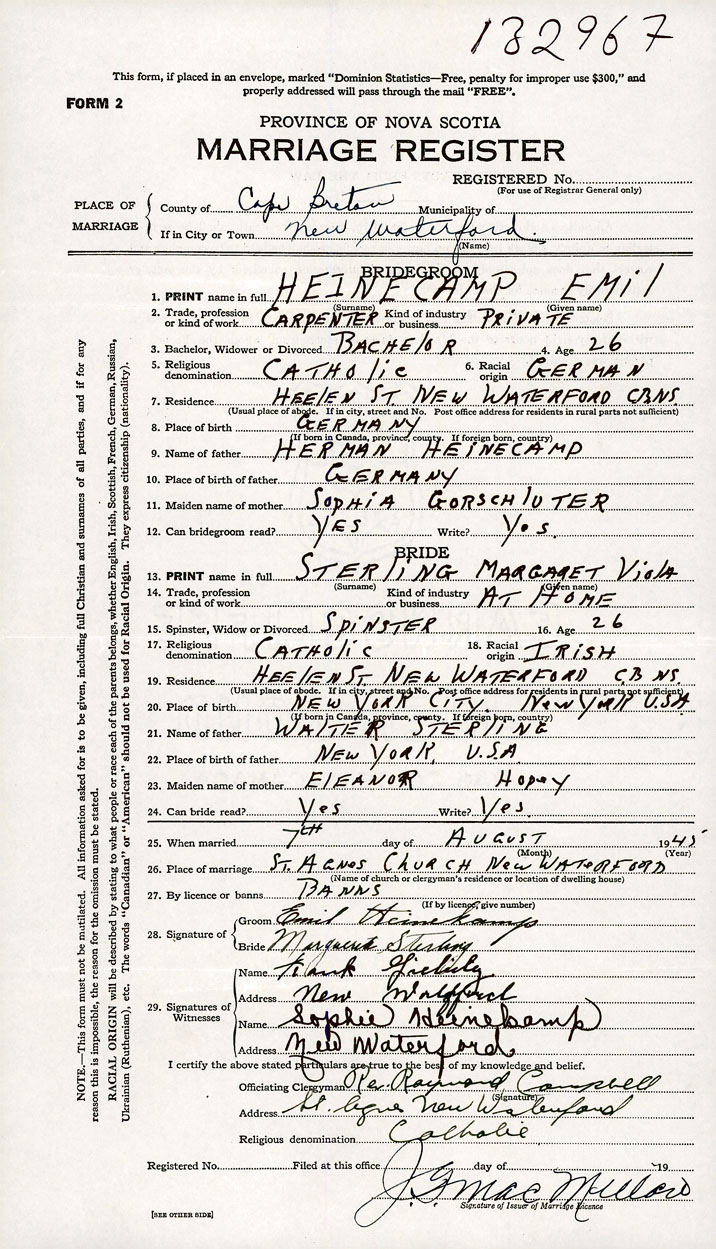 132967
This form, if placed in an envelope, marked “Dominion Statistics—Free, penalty for improper use $300,” and
properly addressed will pass through the mail “FREE”.
FORM 2
PROVINCE OF NOVA SCOTIA
MARRIAGE REGISTER
REGISTERED No.
(For use of Registrar General only)
PLACE OF MARRIAGE
County of Cape Breton Municipality of
If in City or Town New Waterford.
(Name)
BRIDEGROOM
1. PRINT name in full HEINECAMP EMil
(Surname) (Given name)
2. Trade, profession or kind of work CARPENTER Kind of industry or business PRIVATE
3. Bachelor, Widower or Divorced BACHELOR 4. Age 26
5. Religious denomination CATHOLic 6. Racial origin GERMAN
7. Residence HEELEN ST NEW WATERFORD CBNS
(Usual place of abode. If in city, street and No. Post office address for residents in rural parts not sufficient)
8. Place of birth GERMANY
(If born in Canada, province, county. If foreign born, country)
9. Name of father HERMAN HEINECAMP
10. Place of birth of father GERMANY
11. Maiden name of mother SOPHIA GORSCHLUTER
12. Can bridegroom read? YES Write? Yes.
BRIDE
13. PRINT name in full STERLING MARGARET ViolA
(Surname) (Given name)
14. Trade, profession or kind of work Kind of industry or business AT HOME
15. Spinster, Widow or Divorced SPINSTER 16. Age 26
17. Religious denomination CATHOLic 18. Racial origin IRISH
19. Residence HEELEN ST NEW WATERFORD CB NS.
(Usual place of abode. If in city, street and No. Post office address for residents in rural parts not sufficient)
20. Place of birth NEW YORK CITY. NEW YORK U.S.A
(If born in Canada, province, county. If foreign born, country)
21. Name of father WALTER STERLING
22. Place of birth of father NEW YORK, U.S.A
23. Maiden name of mother ELEANOR Hopey
24. Can bride read? Yes Write? Yes.
25. When married 7TH day of AUGUST 1945
(Month) (Year)
26. Place of marriage ST. AGNES CHURCH NEW WATERFORD
(Name of church or clergyman's residence or location of dwelling house)
27. By licence or banns BANNS
(If by licence, give number)
28. Signature of
Groom Emil Heinekamp
Bride Sterling
29. Signatures of Witnesses
Name Frank
Address New
Name Sophie Heinekamp
Address New Waterford
I certify the above stated particulars are true to the best of my knowledge and belief.
Officiating Clergyman Rev. Raymond Campbell
(Signature)
Address St. Agnes New Waterford
Religious denomination Catholic
Registered No. Filed at this office day of 19
J. G. MacMillan
Signature of Issuer of Marriage Licence
[SEE OTHER SIDE]
NOTE.—This form must not be mutilated. All information asked for is to be given, including full Christian and surnames of all parties, and if for any
reason this is impossible, the reason for the omission must be stated.
RACIAL ORIGIN will be described by stating to what people or race each of the parents belongs, whether English, Irish, Scottish, French, German, Russian,
Ukrainian (Ruthenian), etc. The words “Canadian” or “American” should not be used for Racial Origin. They express citizenship (nationality).